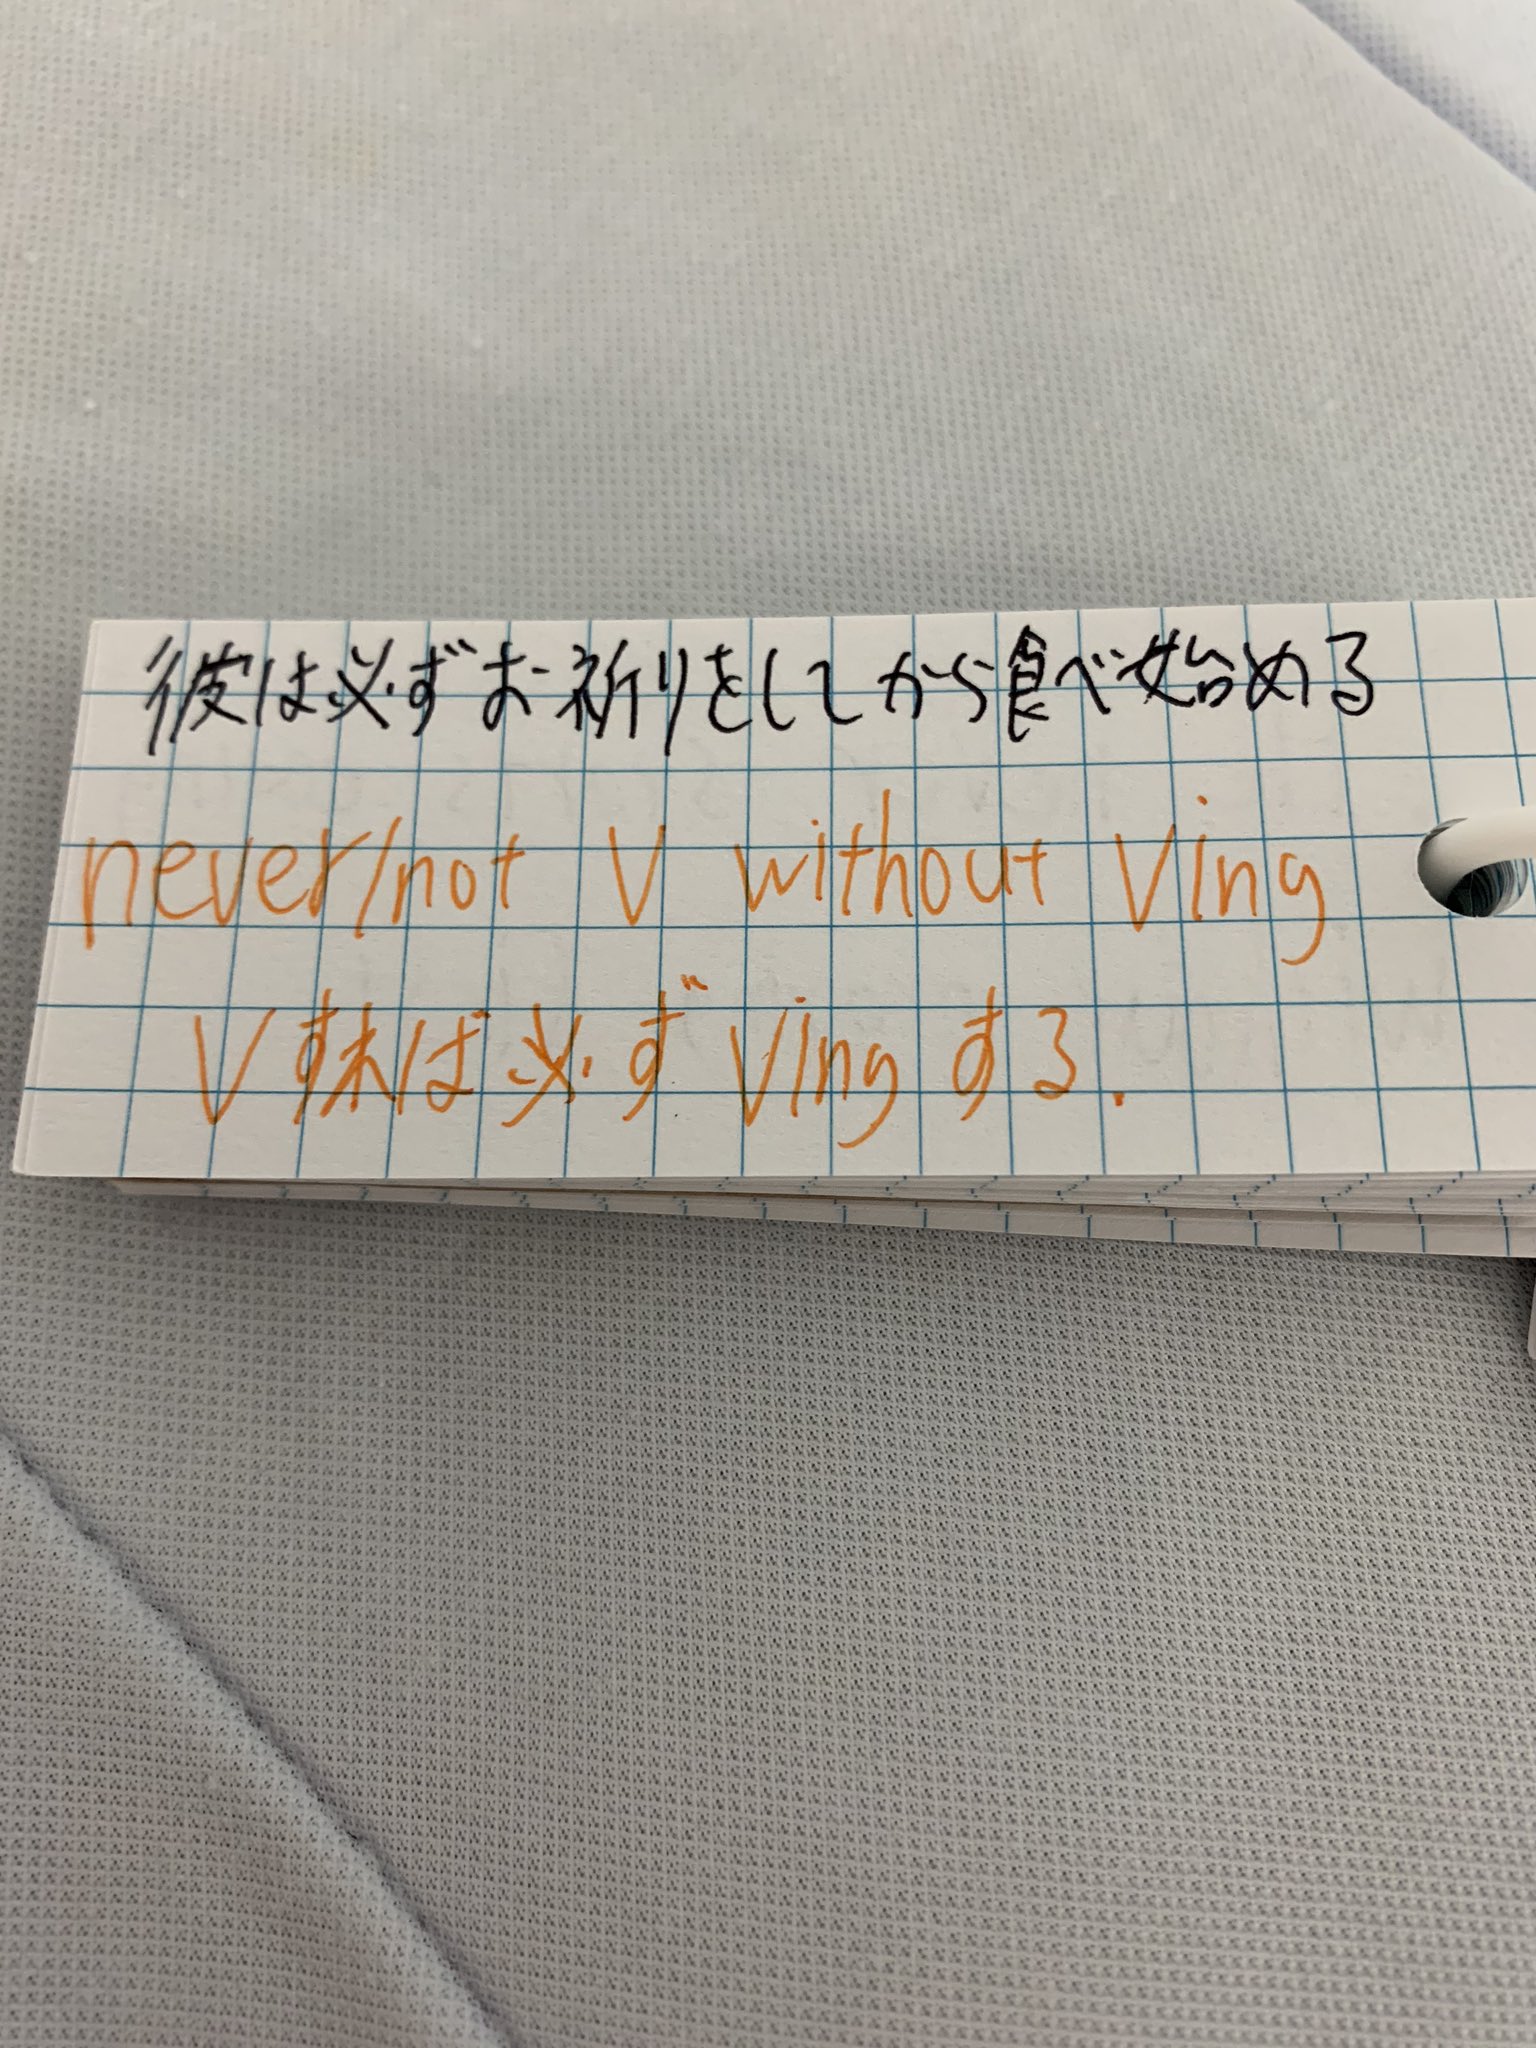 彼は必ずお祈りをしてから食べ始める
never/not V without Ving
Vすれば必ずVingする.